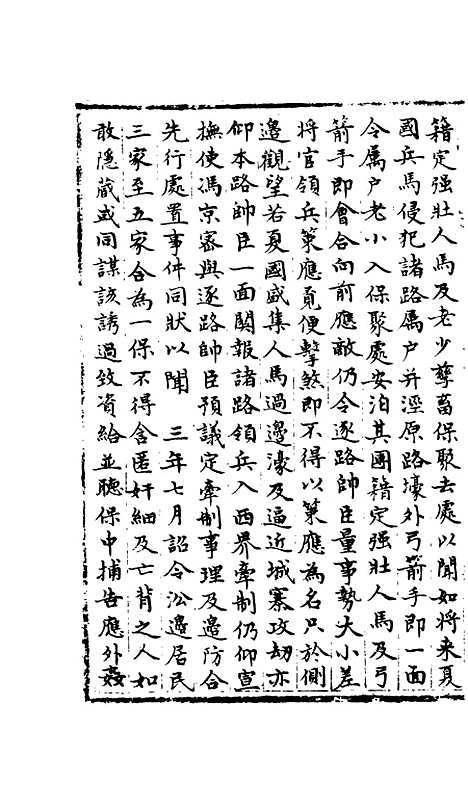 籍定强壯人馬及老少孳畜保聚去處以聞如將來夏
國兵馬侵犯諸路屬户并涇原路壕外弓箭手即一面
令属户老小入保聚處安泊其團籍定强壯人馬及弓
箭手即會合向前應敵仍令逐路帥臣量事勢大小差
將官領兵策應覔便擊煞即不得以策應為名只於側
邊觀望若夏國盛集人馬過邊濠及逼近城寨攻刼亦
仰本路帥臣一面関報諸路領兵入西界牽制仍仰宣
撫使馮京審與逐路帥臣預議定牽制事理及邉防合
先行處置事件同狀以聞　三年七月詔令沿邉居民
三家至五家合為一保不得舍匿奸細及亡背之人如
敢隱蔵或同謀該誘過致資給並聽保中捕告應外姦